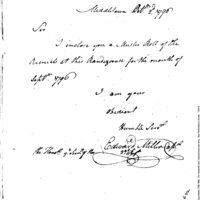 Middletown Octr 2d 1796
Sir
I inclose you a Muster Roll of the
Recruits at this Rendezvous for the month of
Septr 1796
I am your
obedient
Humble Servt
Edward Miller Capt